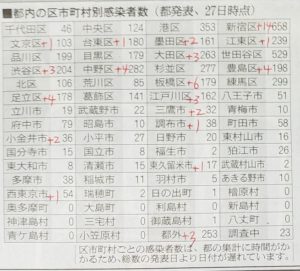 ■都内の区市町村別感染者数(都発表、27日時点)
千代田区 46 中央区 124 港区 353 新宿区+14658
文京区+1103 台東区+1180 墨田区+2161 江東区+1239
品川区 199 目黒区 大田区+3262 世田谷区 529
渋谷区+3274 中野区+4282 杉並区 277 豊島区+4198
北区 106 荒川区 85 板橋区+6179 練馬区 299
足立区+4178 葛飾区 141 江戸川区+3162 八王子市 51
立川市 19 武蔵野市 22 三鷹市+232 青梅市 10
府中市 79 昭島市 10 調布市+138 町田市 58
小金井市+236 小平市 27 日野市 20 東村山市 16
国分寺市 15 国立市 8 福生市 2 狛江市 26
東大和市 8 清瀬市 15 東久留米市+117 武蔵村山市 2
多摩市 38 稲城市 11 羽村市 5 あきる野市 10
西東京市+154 瑞穂町 2 日の出町 1 檜原村 0
奥多摩町 0 大島町 0 利島村 0 新島村 0
神津島村 0 三宅村 0 御蔵島村 1 八丈町 0
青ケ島村 0 小笠原村 0 都外+3253 調査中 23
区市町村ごとの感染者数は、都の集計に時間がか
かるため、総数の発表より日付が遅れています。